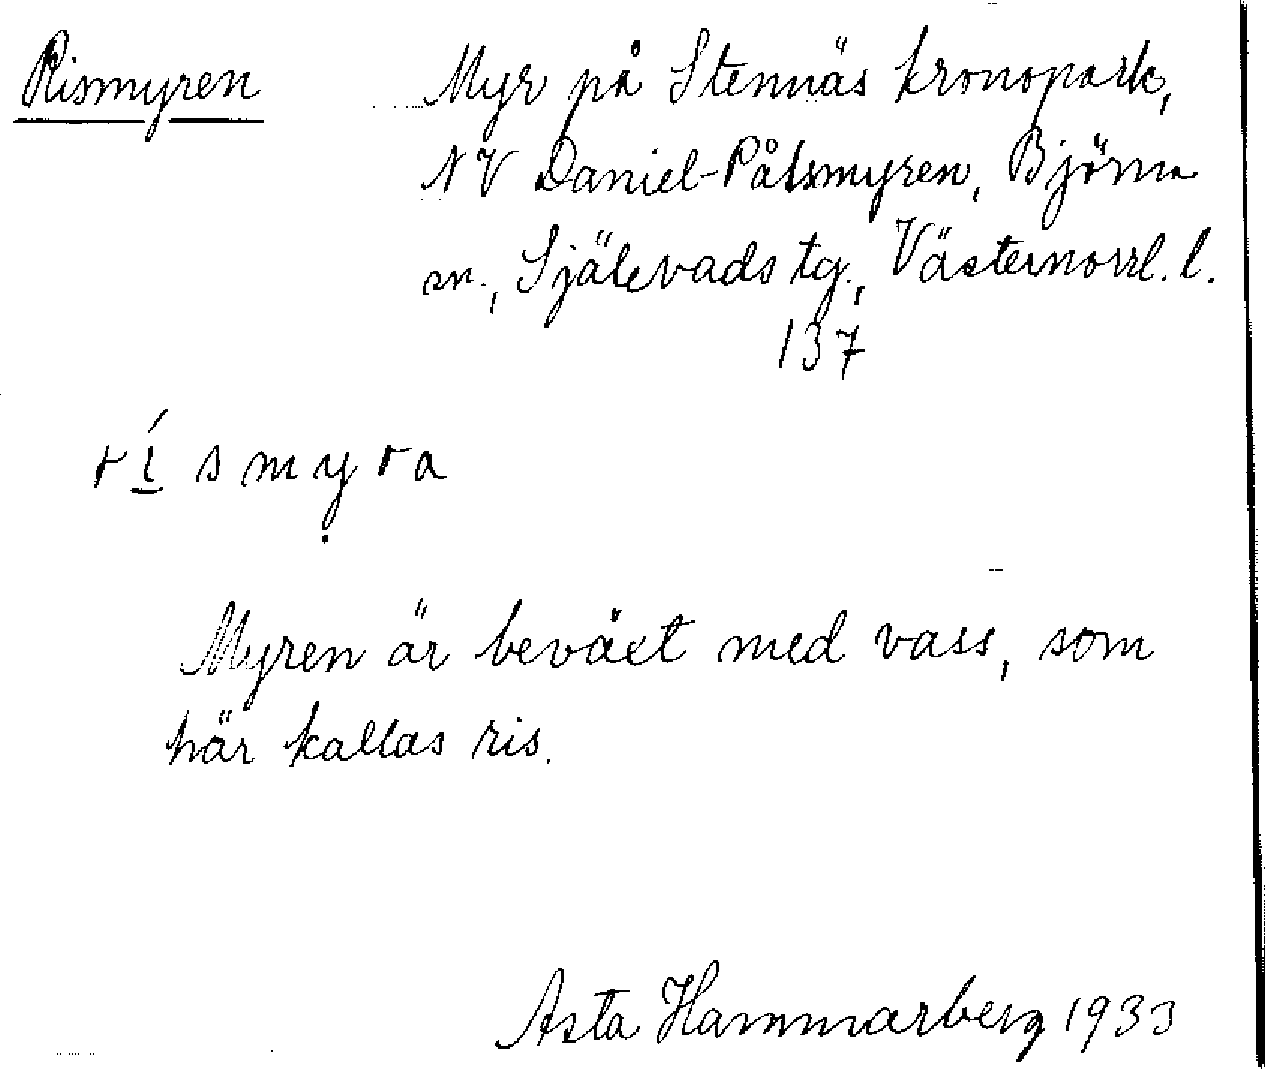 Rismyren
Myr på Stennäs kronopark,
NV Daniel-Pålsmyren, Björna
sn., Själevads tg., Västernorrl. l.
137
rí̱smỵra
Myren är beväxt med vass, som
här kallas ris.
Asta Hammarberg 1933